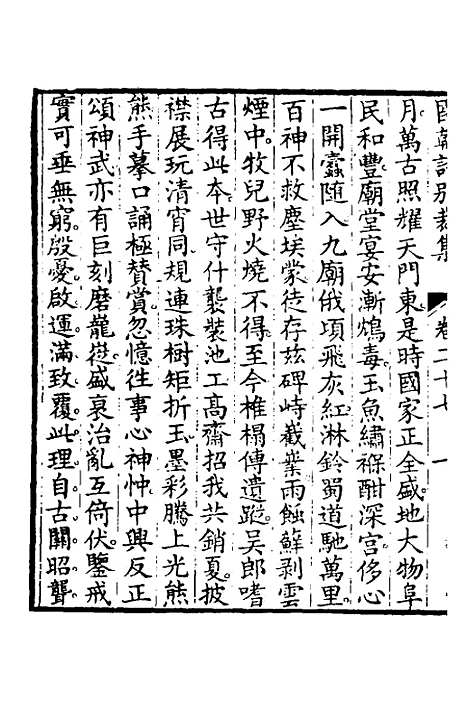 國朝詩別裁集 卷二十七 一
月萬古照耀天門東是時國家正全盛地大物阜
民和豐廟堂宴安漸鴆毒玉魚繡褓酣深宮侈心
一開蠹隨入九廟俄頃飛灰紅淋鈴蜀道馳萬里
百神不救塵埃蒙徒存玆碑峙嶻嶪雨蝕蘚剥雲
煙中牧兒野火燒不得至今椎榻傳遺蹤吴郎嗜
古得此本世守什襲裝池工髙齋招我共銷夏披
襟展玩清宵同規連珠樹矩折玉墨彩騰上光熊
熊手摹口誦極贊賞忽憶徃事心神忡中興反正
頌神武亦有巨刻磨龍嵸盛衰治亂互倚伏鑒戒
實可垂無窮殷憂啟運滿致覆此理自古關昭聾